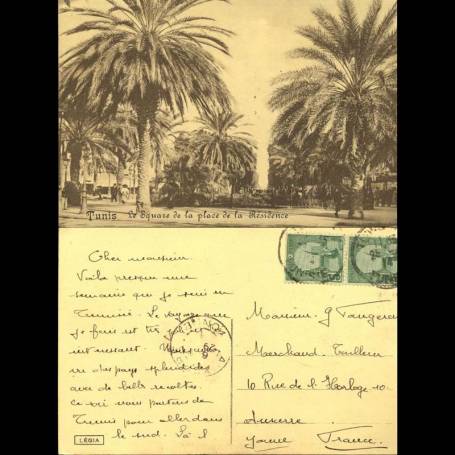 Tunis Le Square de la place de la Résidence
Cher monsieur
Voila presque une
semaine que je suis en
Tunisie. Le voyage que
je fais est très
intéressant.
des pays splendides
avec de belles récoltes.
Ce soir nous partons de
Tunis pour aller dans
le sud.
LÉGIA
Monsieur G
Marchand Tailleur
10 Rue de l'Horloge 10
Auxerre
Yonne France